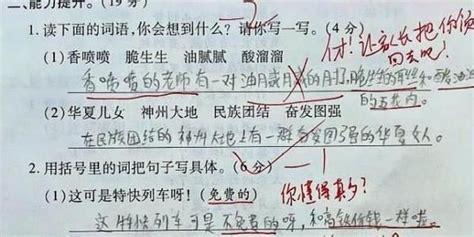 二、能力提升。(19分)
1.读下面的词语,你会想到什么?请你写一写。(4分)
(1)香喷喷 脆生生 油腻腻 酸溜溜
才!让家长把你领回去吧!
香喷喷的老师有一对油腻腻的
(2)华夏儿女 神州大地 民族团结 奋发图强
在民族团结的神州大地上有一群奋发图强的华夏女人。
2.用括号里的词把句子写具体。(6分)
(1)这可是特快列车呀!(免费的)
你懂得真多?
这特快列车可是不免费的呀,和高铁价钱一样啦。